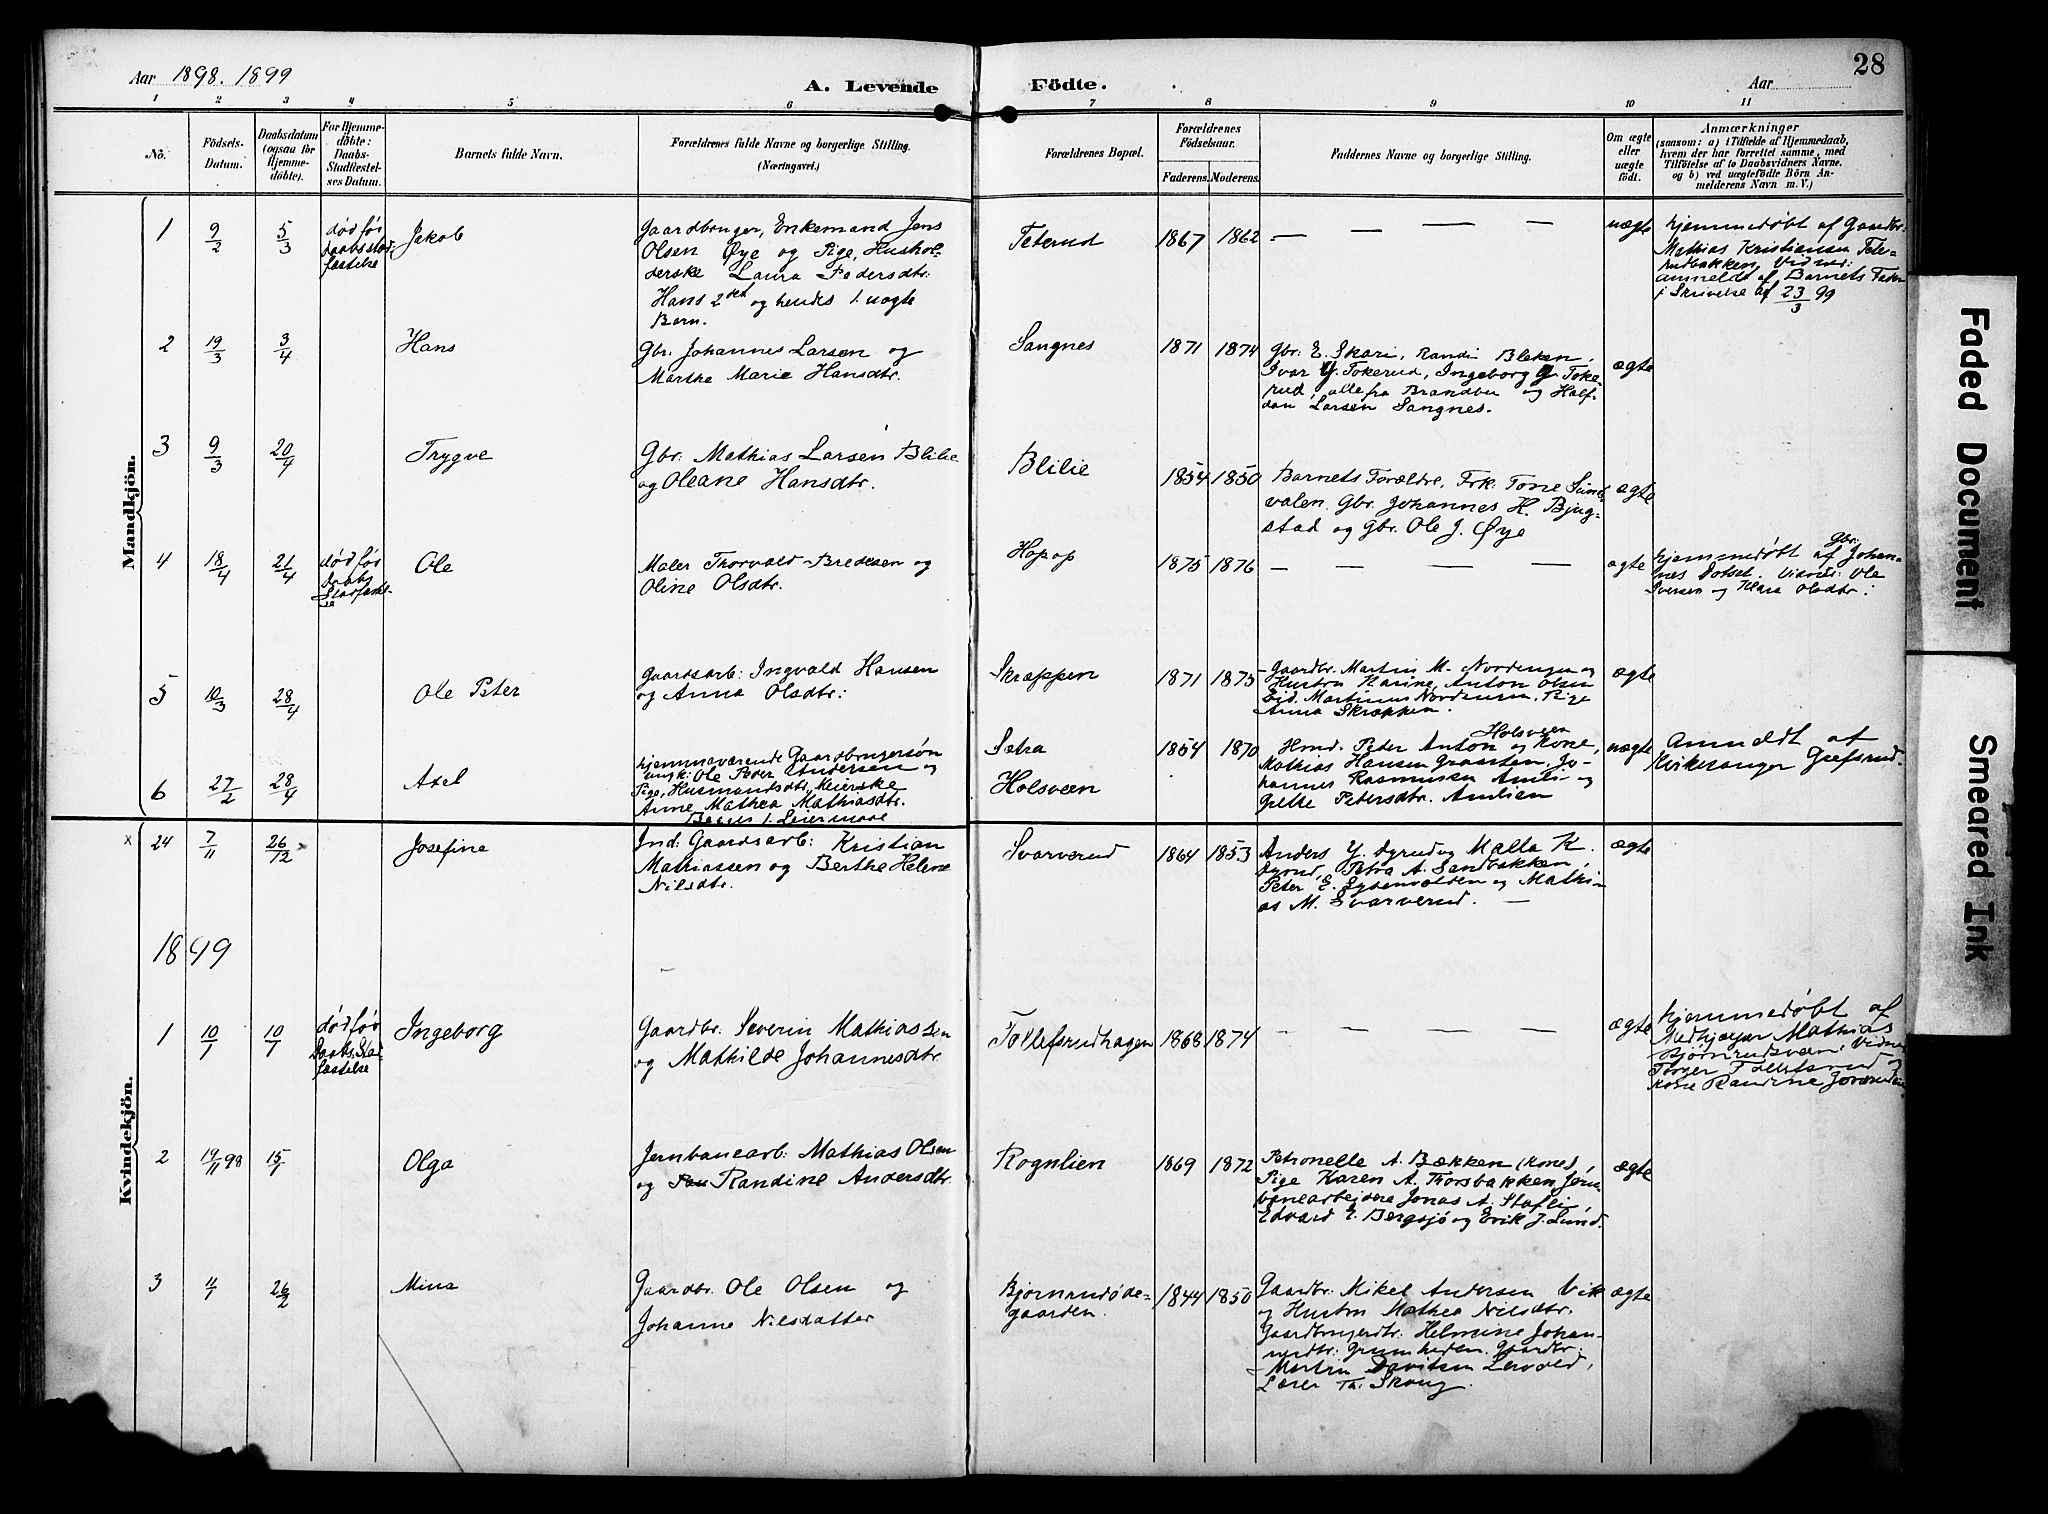 Aar 1898. 1899
A. Levende Födte.
Aar
28
1 2 3 4 5 6 7 8 9 10 11
No.
Födsels-
Datum.
Daabsdatum
(ogsaa for
Hjemme-
döbte).
For Hjemme-
döbte:
Daabs-
Stadfæstel-
ses Datum.
Barnets fulde Navn.
Forældrenes fulde Navne og borgerlige Stilling.
(Næringsvei.)
Forældrenes Bopæl.
Forældrenes
Födselsaar.
Faderens. Moderens.
Faddernes Navne og borgerlige Stilling.
Om ægte
eller
uægte
födt.
Anmærkninger
(saasom: a) i Tilfælde af Hjemmedaab,
hvem der har forrettet samme, med
Tilföielse af to Daabsvidners Navne.
og b) ved uægtefödte Börn An-
melderens Navn m. V.)
Mandkjön.
1 9/2 5/3
død før
Daabsstad-
fæstelse
Jakob
Gaardbruger, Enkemand Jens
Olsen Øye og Pige, Hushol-
derske Laura Pedersdtr:
Hans 2det og hendes 1. uægte
Barn.
Teterud 1867 1862 — — — — uægte
hjemmedøbt af Gaardbr:
Mathias Kristiansen Tete-
rudbakken, Vidner:
anmeldt af Barnets Fader
i Skrivelse af 23/3 99
2 19/3 3/4 Hans
Gbr: Johannes Larsen og
Marthe Marie Hansdtr.
Sangnes 1871 1874
Gbr: E. Skari, Randi Bleken,
Ivar G. Tokerud, Ingeborg G. Toke-
rud, alle fra Brandbu og Half-
dan Larsen Sangnes.
ægte
3 9/3 20/4 Trygve
Gbr. Mathias Larsen Blilie
og Oleane Hansdtr.
Blilie 1854 1850
Barnets Forældre, Frk: Tone
valen, Gbr. Johannes H. Bjug-
stad og Gbr. Ole J. Øye
ægte
4 18/4 21/4
død før
Daabs
Ole
Maler Thorvald Bredesen og
Oline Olsdtr.
Hopop 1875 1876 — — — — ægte
hjemmedøbt af Gbr. Johan-
nes Dotset. Vidner: Ole
Iversen og Klara Olsdtr.
5 10/3 28/4 Ole Peter
Gaardsarb: Ingvald Hansen
og Anna Olsdtr:
Skræppen 1871 1875
Gaardbr. Martin M. Nordengen og
Hustru Karine, Anton Olsen
Eid, Martinus Nordengen, Pige
Anna Skræppen.
ægte
6 27/2 28/4 Axel
hjemmeværende Gaardbrugersøn
ungk: Ole Peder Andersen og
Pige, Husmandsdtr, Meierske
Anne Mathea Mathiasdtr.
Begges 1. Leiermaal
Sætra
Holsveen
1854 1870
Hmd. Peter Anton Holsveen og Kone,
Mathias Hansen Graasten, Jo-
hannes Rasmussen Amlien og
Grethe Petersdtr. Amlien
uægte
Anmeldt af
Kirkesanger Gjefsrud.
Kvindekjön.
x 24 7/11 26/12 Josefine
Ind: Gaardsarb: Kristian
Mathiassen og Berthe Helene
Nilsdtr.
Svarverud 1864 1853
Anders Y. Dyrud og Malla K.
Dyrud, Petra A. Sandbakken,
Peter E. Sydenvolden og Mathi-
as M. Svarverud. —
ægte
1899
1 10/1 10/1
død før
Daabs-Stad-
fæstelse
Ingeborg
Gaardbr. Severin Mathiassen
og Mathilde Johannesdtr.
Tollefsrudhagen 1868 1874 — — — — ægte
hjemmedøbt af
Medhjælper Mathias
Bjørnrudsveen. Vidner
Torger Tollefsrud og
Kone Randine
2 19/11 98 15/1 Olga
Jernbanearb: Mathias Olsen
og Randine Andersdtr.
Rognlien 1869 1872
Petronelle A. Bækken (Kone),
Pige Karen A. Thorsbakken, Jern-
banearbeidere Jonas A. Stofli,
Edvard E. Bergsjø og Erik J. Lund.
ægte
3 11/1 26/2 Mina
Gaardbr. Ole Olsen og
Johanne Nilsdatter
Bjørnerudøde-
gaarden.
1844 1850
Gaardbr. Mikel Andersen Vik
og Hustru Mathea Nilsdtr.
Gaardbrugerdtr: Helmine Johan-
nesdtr: Grumheden, Gaardbr:
Martin Davidsen Lervold,
Lærer Th. Skoug.
ægte
Faded Document
Smeared Ink